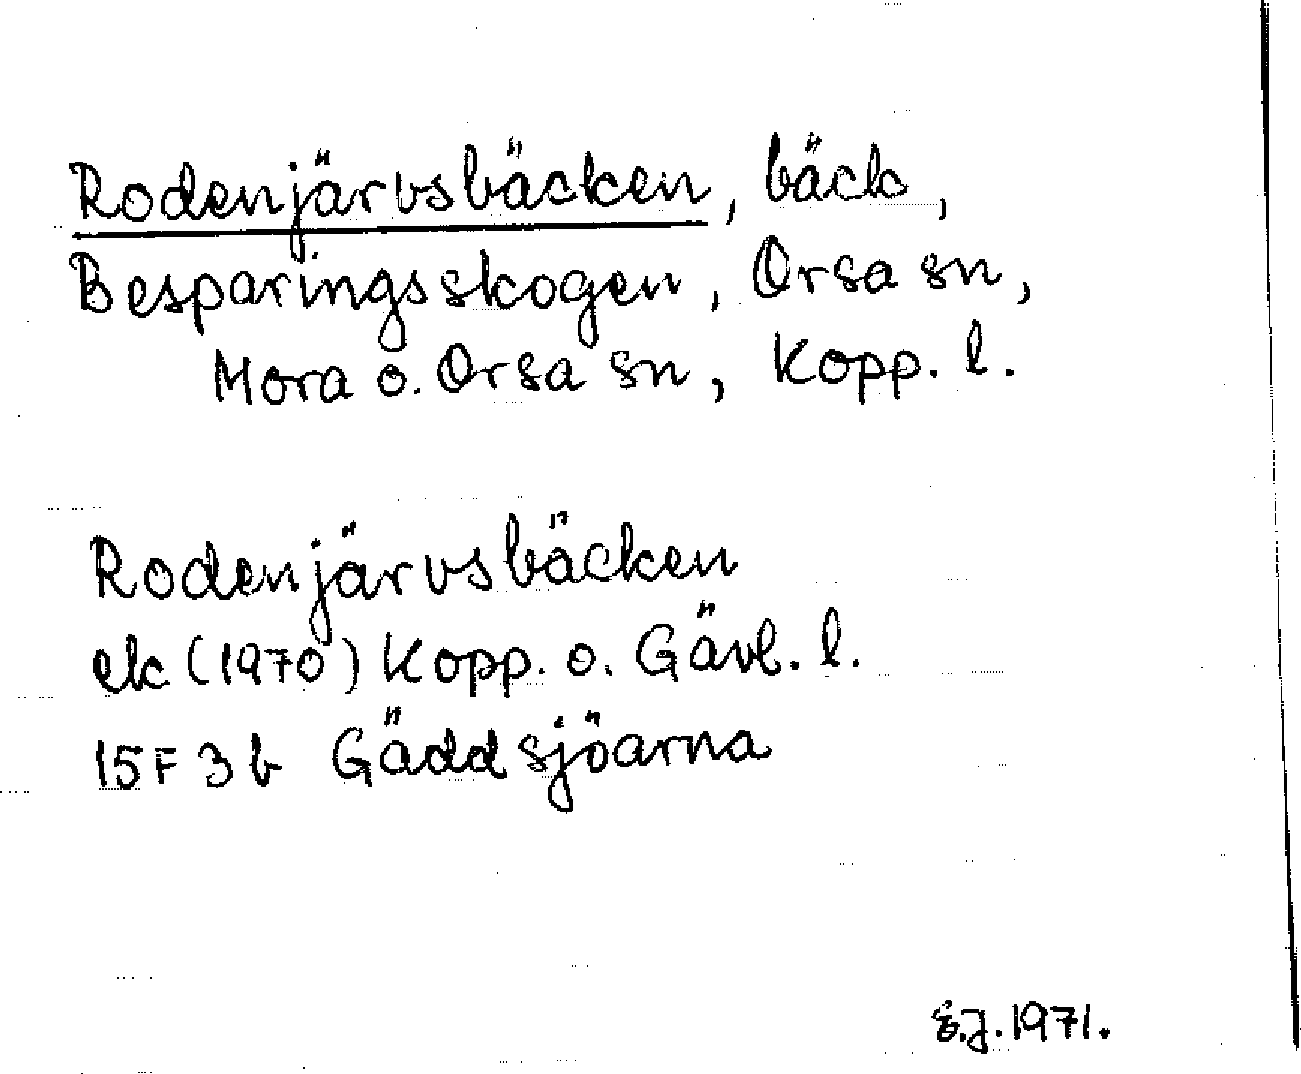 Rodenjärvsbäcken, bäck,
Besparingsskogen, Orsa sn,
Mora o. Orsa sn, Kopp. l.
Rodenjärvsbäcken
ek (1970) Kopp. o. Gävl. l.
15F 3b Gäddsjöarna
S.J. 1971.